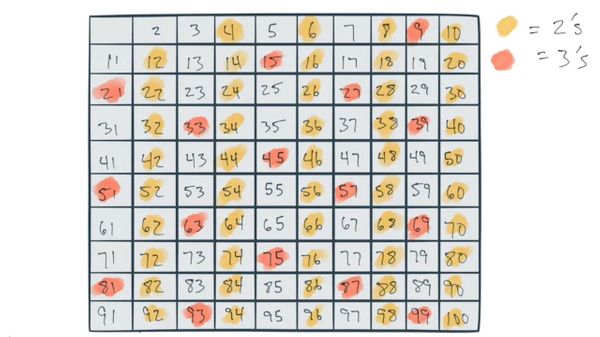 2 3 4 5 6 7 8 9 10
11 12 13 14 15 16 17 18 19 20
21 22 23 24 25 26 27 28 29 30
31 32 33 34 35 36 37 38 39 40
41 42 43 44 45 46 47 48 49 50
51 52 53 54 55 56 57 58 59 60
61 62 63 64 65 66 67 68 69 70
71 72 73 74 75 76 77 78 79 80
81 82 83 84 85 86 87 88 89 90
91 92 93 94 95 96 97 98 99 100
= 2's
= 3's